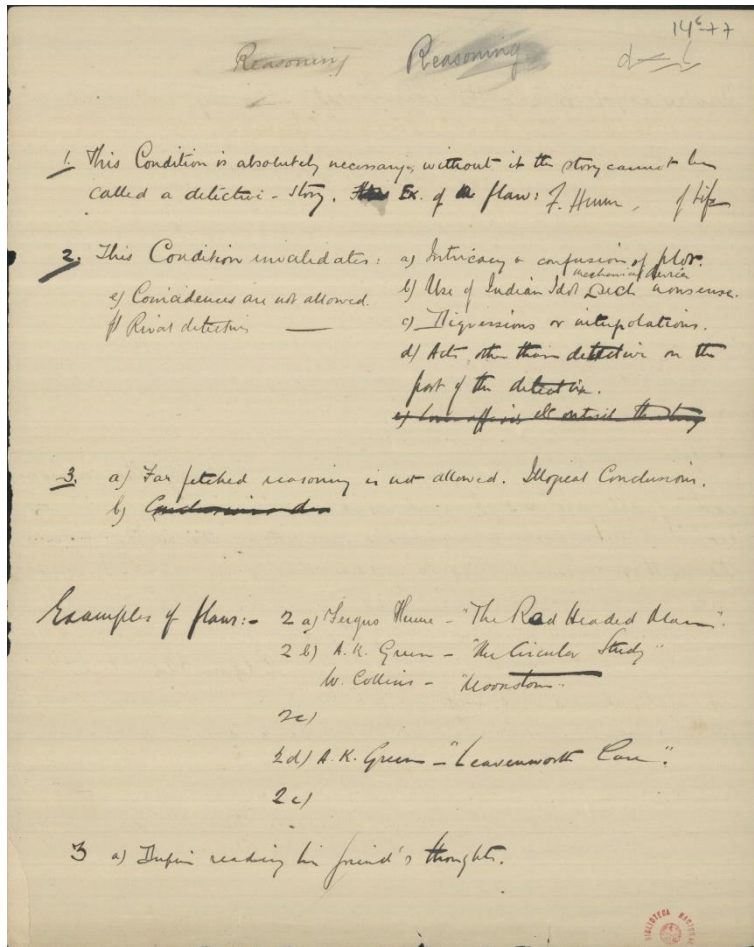 14⁶-77
Reasoning Reasoning
1. This Condition is absolutely necessary, without it the story cannot be
called a detective-story. Ex. of flaw: F. Hume, of Life
2. This Condition invalidates: a) Intricacy & confusion of plot.
mechanical device
b) Use of Indian Idol such nonsense.
e) Coincidences are not allowed.
f) Rival detectives —
c) Digressions or interpolations.
d) Acts other than detective on the
part of the detective.
e) Love affairs &c outside the story
3. a) Far fetched reasoning is not allowed. Illogical Conclusions.
b)
Examples of flaws:- 2 a) Fergus Hume - "The Red Headed Man".
2 b) A.K. Green - "The Circular Study"
W. Collins - "Moonstone".
2c)
2d) A.K. Green - "Leavenworth Case".
2e)
3 a) Dupin reading his friend's thoughts.
BIBLIOTECA NACIONAL